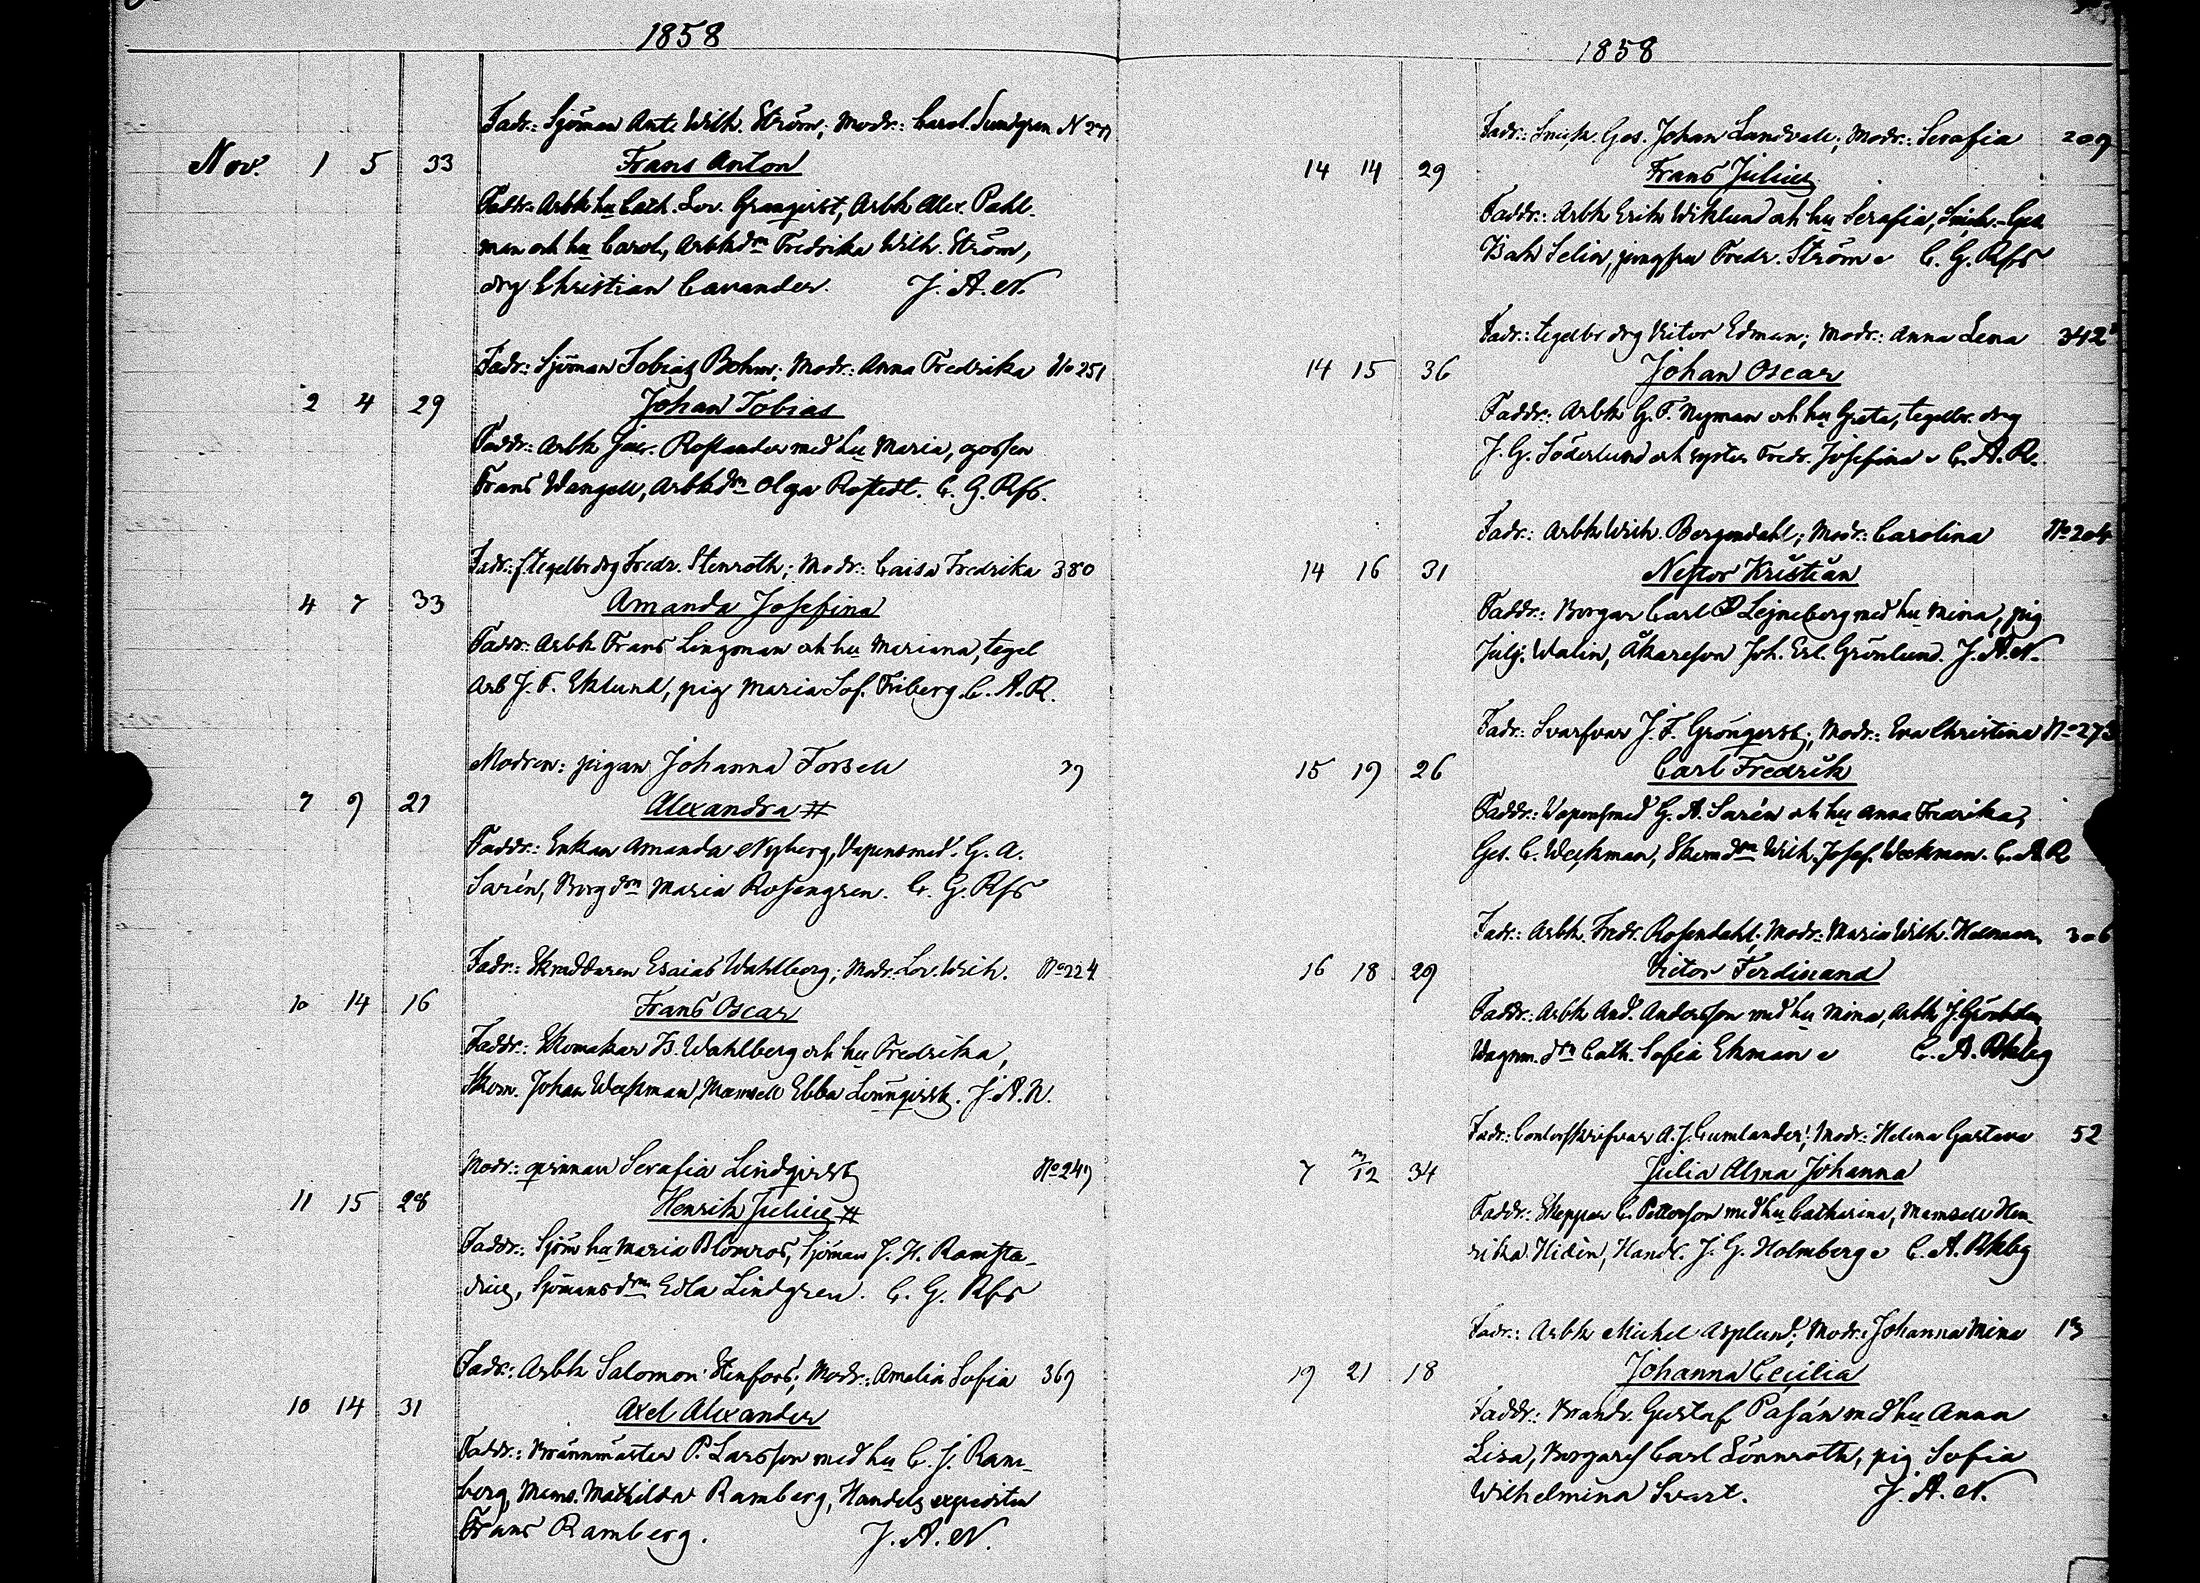 1858
Fadr: Sjöman Ant. Wilh. Ström; Modr: Carol. Sundgren N 277
Nov. 1 5 33 Frans Anton
Faddr: Arbk hu Cath. Lov. Granqvist, Arbk Alex. Pahl-
man och hu Carol., Arbk dn Fredrika Wilh. Ström,
drg Christian Cavander. J. A. N.
Fadr: Sjöman Tobias Bohm; Modr: Anna Fredrika No 251
2 4 29 Johan Tobias
Faddr: Arbk Jac. Rostander med hu Maria, gossen
Frans Wangell, Arbk dn Olga Rostedt. C. G. Rfs.
Fadr: tegelbr drg Fredr. Stenroth; Modr: Caisa Fredrika 380
4 7 33 Amanda Josefina
Faddr: Arbk Frans Lingman och hu Mariana, tegel
Arb J. F. Eklund, pig Maria Sof. Friberg. C. A. R.
Modren: pigan Johanna Forsell 39
7 9 21 Alexandra #
Faddr: Enkan Amanda Nyberg, Vapensmed. G. A.
Sarén, Borg dn Maria Rosengren. C. G. Rfs
Fadr: Skräddaren Esaias Wahlberg; Modr: Lov. Wilh. No 224
10 14 16 Frans Oscar
Faddr: Skomakar Is. Wahlberg och hu Fredrika,
Skom. Johan Weckman, Mamsell Ebba Lönnqvist. J. A. N.
Modr: qvinnan Serafia Lindqvist No 249
11 15 28 Henrik Julius #
Faddr: Sjöm hu Maria Blomros, Sjöman J. H. Ramsta-
dius, Sjömans dn Edla Lindgren. C. G. Rfs
Fadr: Arbk Salomon Stenfors; Modr: Amalia Sofia 369
10 14 31 Axel Alexander
Faddr: Brännmäster P. Larsson med hu C. J. Ram-
berg, Mams. Mathilda Ramberg, Handels expeditn
Frans Ramberg. J. A. N.
1858
Fadr: Snick. Ges. Johan Landvall; Modr: Serafia 209
14 14 29 Frans Julius
Faddr: Arbk Erik Wiklund och hu Serafia, Snick. Ges
Isak Selin, jungfru Fredr. Ström C. G. Rfs
Fadr: tegelbr drg Victor Edman; Modr: Anna Lena 342
14 15 36 Johan Oscar
Faddr: Arbk G. F. Nyman och hu Greta, tegelbr. drg
J. G. Söderlund och syster Fredr. Josefina C. A. R.
Fadr: Arbk Wilh. Bergendahl; Modr: Carolina No 204
14 16 31 Nestor Kristian
Faddr: Borgar Carl Lejneberg med hu Mina, pig
Julj. Walin, Åkareson Joh. Erl. Grönlund. J. A. N.
Fadr: Svarfvar J. F. Grönqvist; Modr: Eva Christina No 273
15 19 26 Carl Fredrik
Faddr: Vapensmed G. A. Sarén och hu Anna Fredrika,
Ges. C. Weckman, Skom dn Wilh. Josef. Weckman. C. A. R
Fadr: Arbk Fredr. Rosendahl; Modr: Maria Wilh. Helman 306
16 18 29 Victor Ferdinand
Faddr: Arbk And. Andersson med hu Mina, Arbk J.
Wagnm. dn Cath. Sofia Ekman C. A. Rkbg
Fadr: Contorskrifvar A. J. Cumlander; Modr: Helena Gustava 52
7 2/12 34 Julia Alma Johanna
Faddr: Skeppar C. Petterson med hu Catharina, Mamsell Hen-
rika Hidén, Handl. J. G. Holmberg C. A. Rkbg
Fadr: Arbk Michel Asplund; Modr: Johanna Mina 13
19 21 18 Johanna Cecilia
Faddr: Brandv. Gustaf Pasán med hu Anna
Lisa, Borgares Carl Lönnroth, pig Sofia
Wilhelmina Svart. J. A. N.